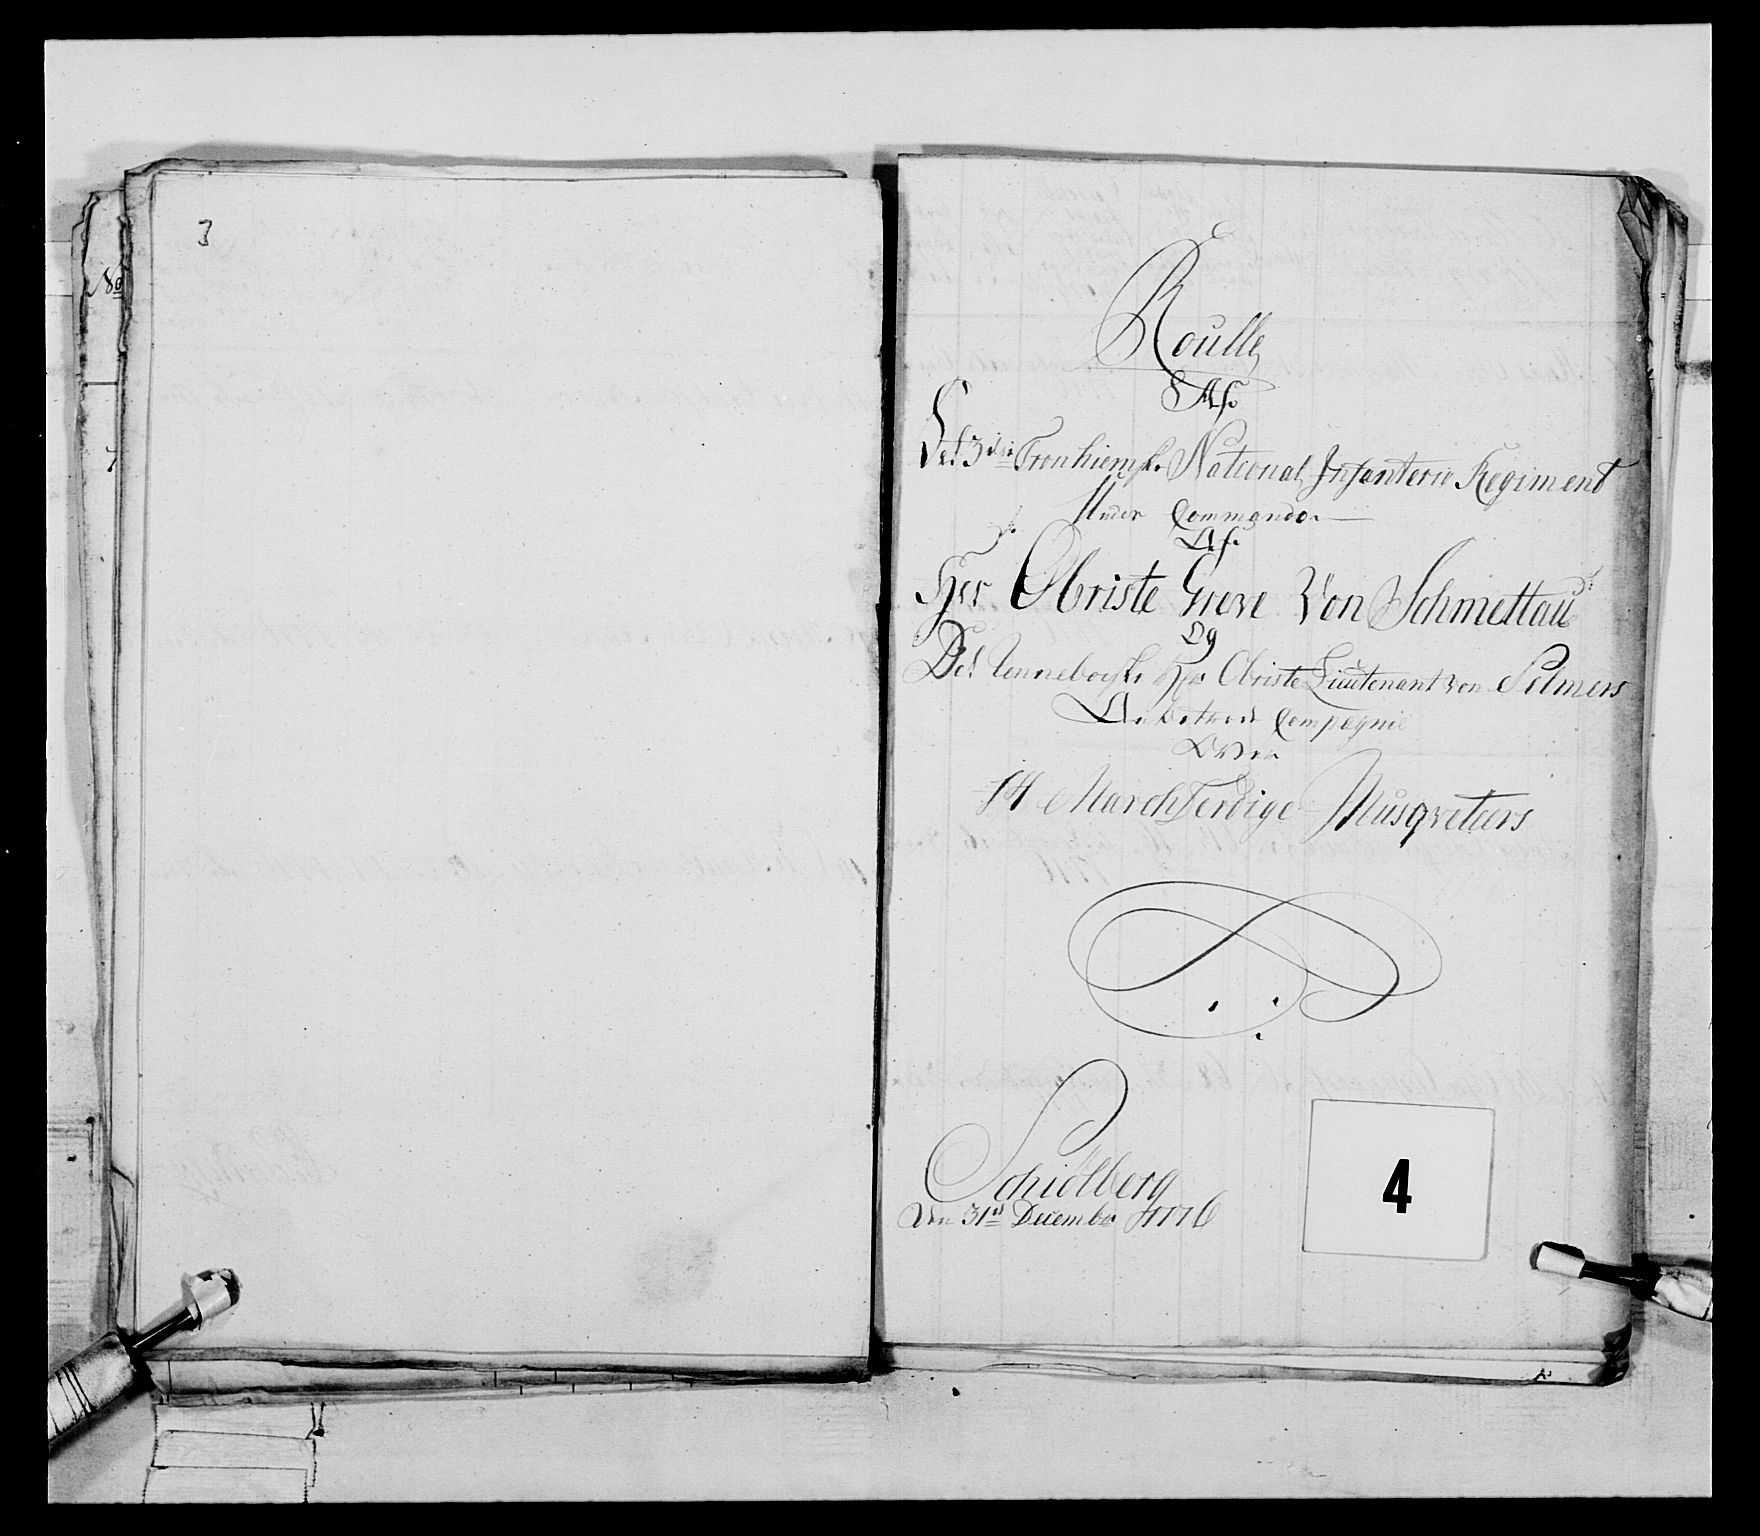 3
No
7
Roulle
Af
Det 3die Tronhiemske National Infanterie Regiment
Under Commando
Af
Her Obriste Greve Von Schmettau
Og
Det Hr Obriste Lieutenant von Selmers
Anbetroede Compagnie
Over
14 Marchferdige Musqveteers
Schiólberg
Den 31te December 1776
4